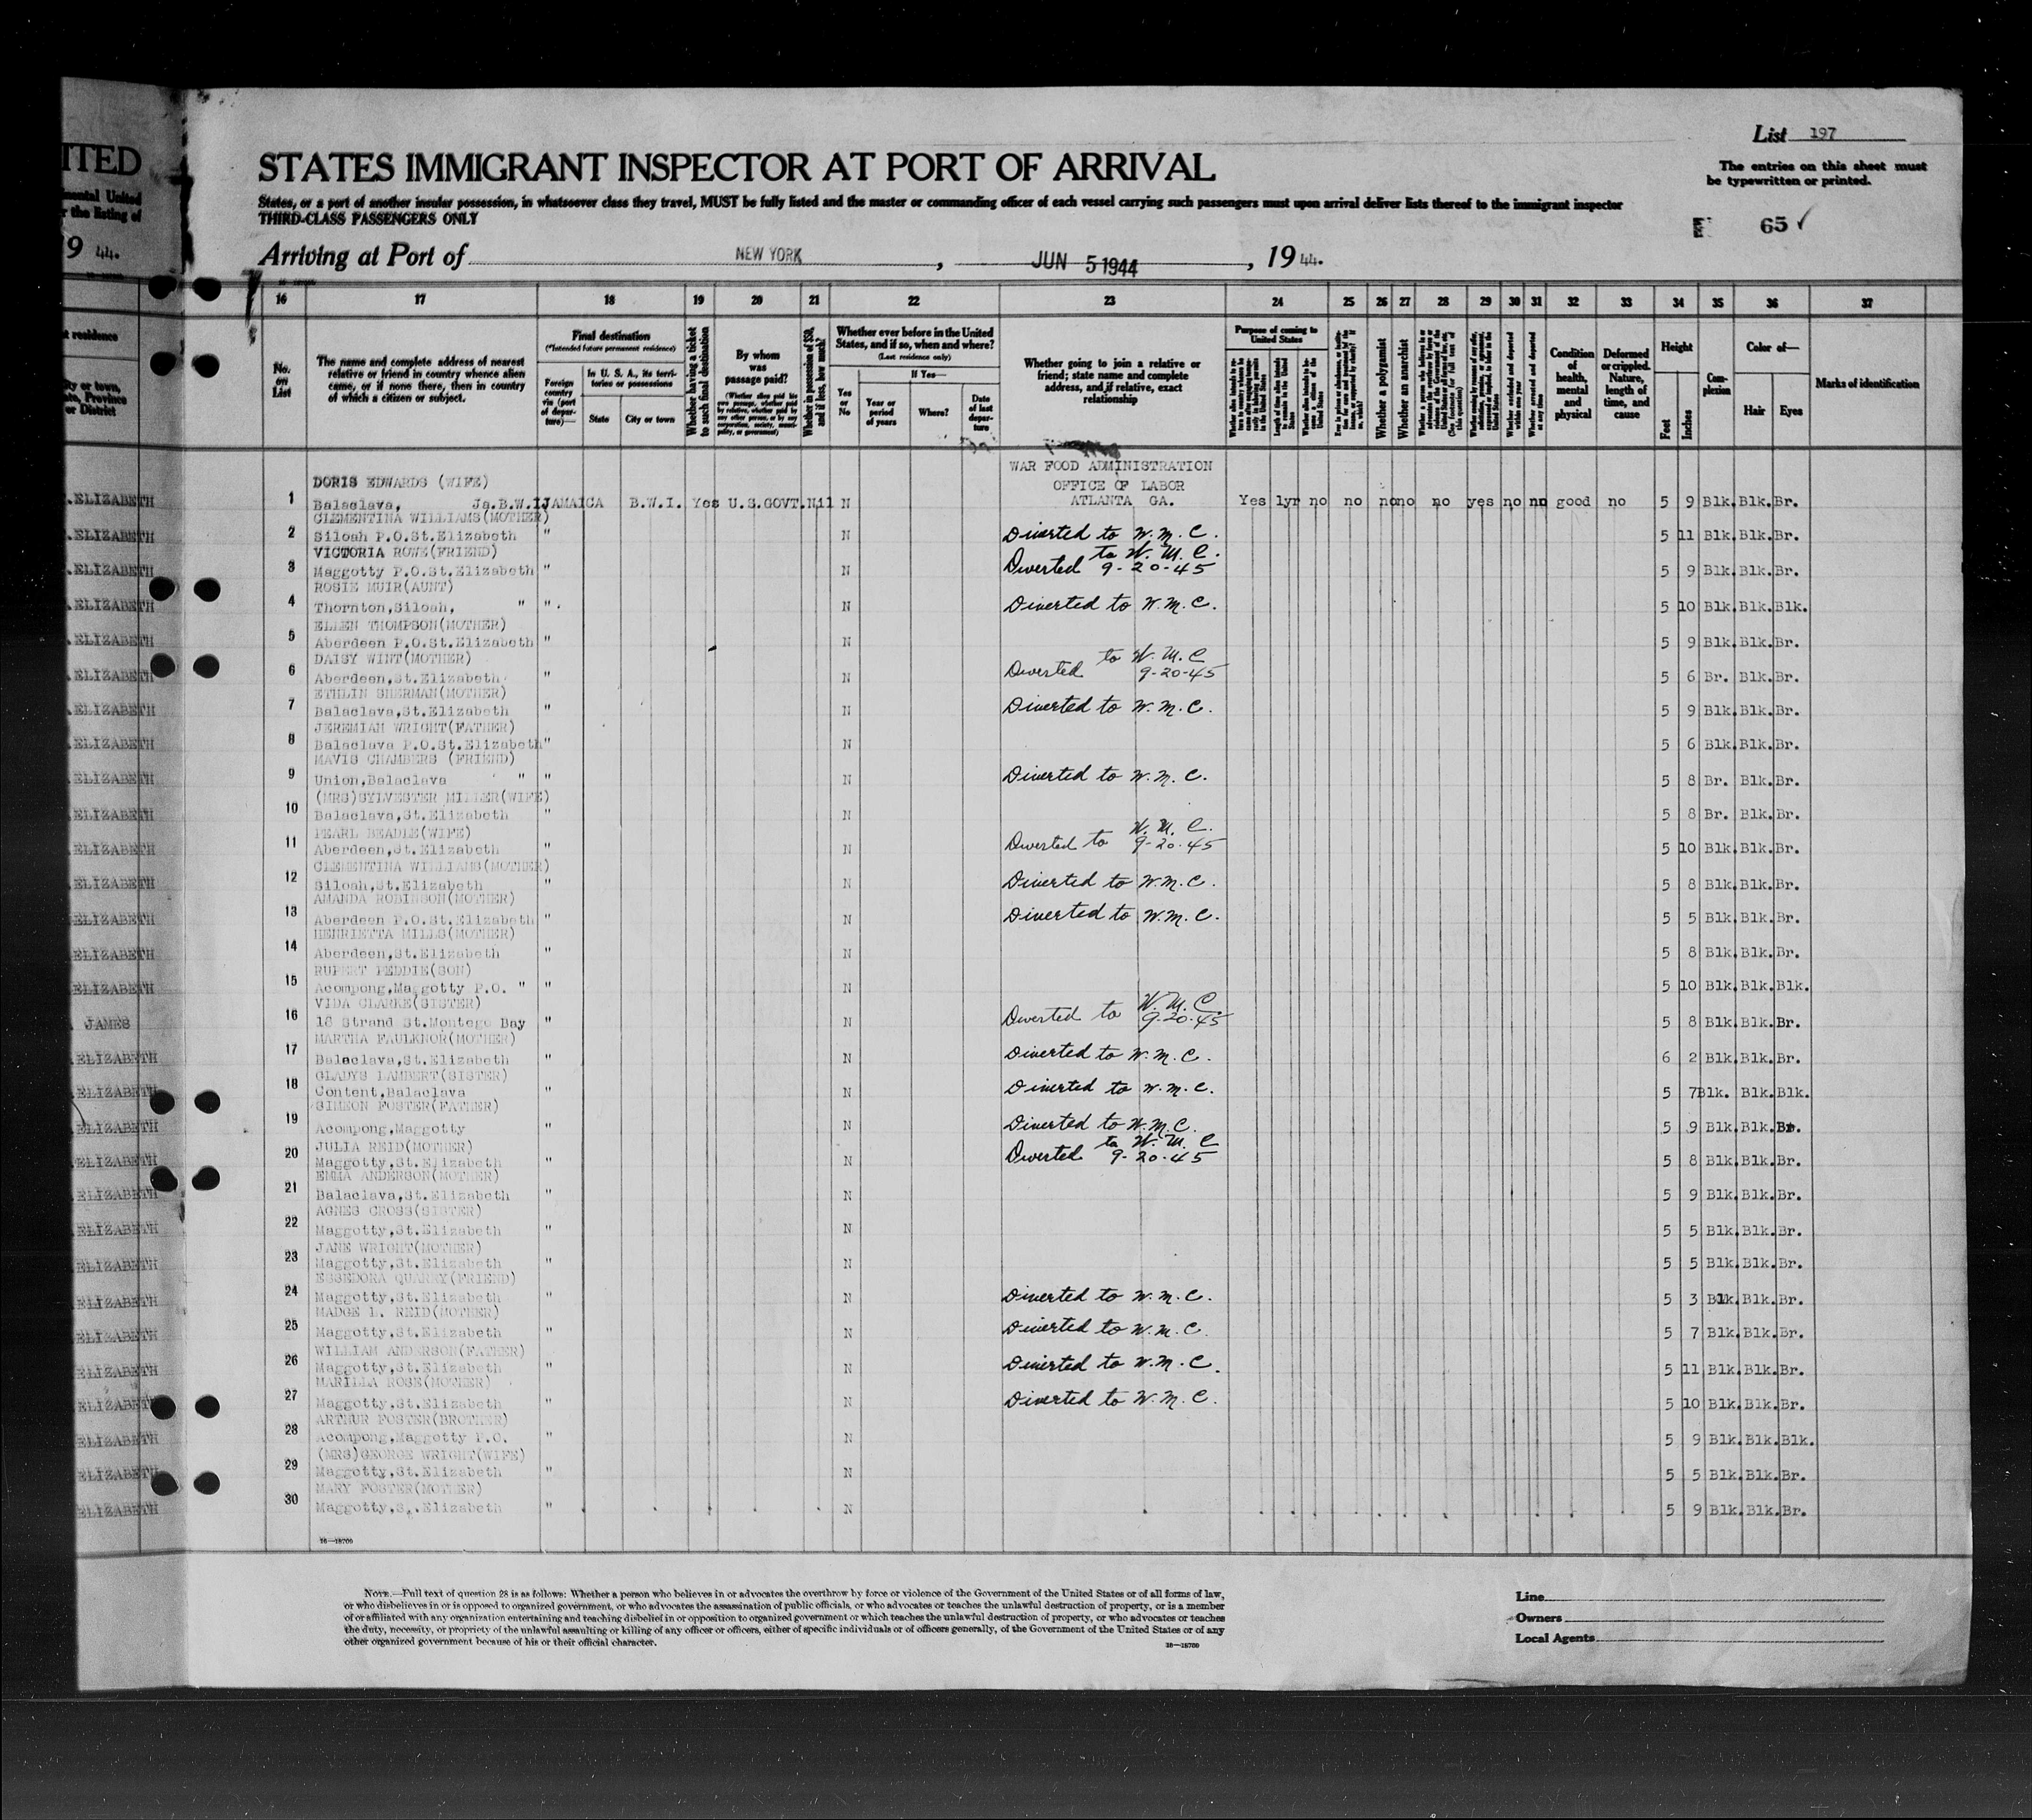 List 197
ITED
STATES IMMIGRANT INSPECTOR AT PORT OF ARRIVAL
The entries on this sheet must
be typewritten or printed.
States, or a port of another insular possession, in whatsoever class they travel, MUST be fully listed and the master or commanding officer of each vessel carrying such passengers must upon arrival deliver lists thereof to the immigrant inspector
THIRD-CLASS PASSENGERS ONLY
65 ✓
9 44.
Arriving at Port of NEW YORK, JUN 5 1944, 19 44.
16 17 18 19 20 21 22 23 24 25 26 27 28 29 30 31 32 33 34 35 36 37
No. on List
The name and complete address of nearest relative or friend in country whence alien came, or if none there, then in country of which a citizen or subject.
Final destination
(*Intended future permanent residence)
Foreign country via (port of departure)—
In U. S. A., its territories or possessions
State
City or town
Whether having a ticket to such final destination
By whom was passage paid?
Whether in possession of $50, and if less, how much?
Whether ever before in the United States, and if so, when and where?
(Last residence only)
Yes or No
If Yes—
Year or period of years
Where?
Date of last departure
Whether going to join a relative or friend; state name and complete address, and if relative, exact relationship
Purpose of coming to United States
Whether a polygamist
Whether an anarchist
Condition of health, mental and physical
Deformed or crippled. Nature, length of time, and cause
Height
Feet
Inches
Complexion
Color of—
Hair
Eyes
Marks of identification
WAR FOOD ADMINISTRATION
OFFICE OF LABOR
ATLANTA GA.
DORIS EDWARDS (WIFE)
1 Balaclava, Ja.B.W.I. JAMAICA B.W.I. Yes U.S.GOVT. Nil N Yes 1yr no no no no no yes no no good no 5 9 Blk. Blk. Br.
CLEMENTINA WILLIAMS(MOTHER)
2 Siloah P.O.St.Elizabeth " N Diverted to W.M.C. 5 11 Blk. Blk. Br.
VICTORIA ROWE(FRIEND)
3 Maggotty P.O.St.Elizabeth " N Diverted to W.M.C. 9-20-45 5 9 Blk. Blk. Br.
ROSIE MUIR(AUNT)
4 Thornton,Siloah, " " N Diverted to W.M.C. 5 10 Blk. Blk. Blk.
ELLEN THOMPSON(MOTHER)
5 Aberdeen P.O.St.Elizabeth " N 5 9 Blk. Blk. Br.
DAISY WINT(MOTHER)
6 Aberdeen,St.Elizabeth " N Diverted to W.M.C 9-20-45 5 6 Br. Blk. Br.
ETHLIN SHERMAN(MOTHER)
7 Balaclava,St.Elizabeth " N Diverted to W.M.C. 5 9 Blk. Blk. Br.
JEREMIAH WRIGHT(FATHER)
8 Balaclava P.O.St.Elizabeth " N 5 6 Blk. Blk. Br.
MAVIS CHAMBERS (FRIEND)
9 Union,Balaclava " " N Diverted to W.M.C. 5 8 Br. Blk. Br.
(MRS)SYLVESTER MILLER(WIFE)
10 Balaclava,St.Elizabeth " N 5 8 Br. Blk. Br.
PEARL BEADLE(WIFE)
11 Aberdeen,St.Elizabeth " N Diverted to W.M.C. 9-20-45 5 10 Blk. Blk. Br.
CLEMENTINA WILLIAMS(MOTHER)
12 Siloah,St.Elizabeth " N Diverted to W.M.C. 5 8 Blk. Blk. Br.
AMANDA ROBINSON(MOTHER)
13 Aberdeen P.O.St.Elizabeth " N Diverted to W.M.C. 5 5 Blk. Blk. Br.
HENRIETTA MILLS(MOTHER)
14 Aberdeen,St.Elizabeth " N 5 8 Blk. Blk. Br.
RUPERT PEDDIE(SON)
15 Acompong,Maggotty P.O. " " N 5 10 Blk. Blk. Blk.
VIDA CLARKE(SISTER)
16 16 Strand St.Montego Bay " N Diverted to W.M.C. 9-20-45 5 8 Blk. Blk. Br.
MARTHA FAULKNOR(MOTHER)
17 Balaclava,St.Elizabeth " N Diverted to W.M.C. 6 2 Blk. Blk. Br.
GLADYS LAMBERT(SISTER)
18 Content,Balaclava " N Diverted to W.M.C. 5 7 Blk. Blk. Blk.
SIMEON FOSTER(FATHER)
19 Acompong,Maggotty " N Diverted to W.M.C. 5 9 Blk. Blk. Br.
JULIA REID(MOTHER)
20 Maggotty,St.Elizabeth " N Diverted to W.M.C 9-20-45 5 8 Blk. Blk. Br.
EMMA ANDERSON(MOTHER)
21 Balaclava,St.Elizabeth " N 5 9 Blk. Blk. Br.
AGNES CROSS(SISTER)
22 Maggotty,St.Elizabeth " N 5 5 Blk. Blk. Br.
JANE WRIGHT(MOTHER)
23 Maggotty,St.Elizabeth " N 5 5 Blk. Blk. Br.
ESSEDORA QUARRY(FRIEND)
24 Maggotty,St.Elizabeth " N Diverted to W.M.C. 5 3 Blk. Blk. Br.
MADGE L. REID(MOTHER)
25 Maggotty,St.Elizabeth " N Diverted to W.M.C. 5 7 Blk. Blk. Br.
WILLIAM ANDERSON(FATHER)
26 Maggotty,St.Elizabeth " N Diverted to W.M.C. 5 11 Blk. Blk. Br.
MARILLA ROSE(MOTHER)
27 Maggotty,St.Elizabeth " N Diverted to W.M.C. 5 10 Blk. Blk. Br.
ARTHUR FOSTER(BROTHER)
28 Acompong,Maggotty P.O. " N 5 9 Blk. Blk. Blk.
(MRS)GEORGE WRIGHT(WIFE)
29 Maggotty,St.Elizabeth " N 5 5 Blk. Blk. Br.
MARY FOSTER(MOTHER)
30 Maggotty,S.Elizabeth " N 5 9 Blk. Blk. Br.
16—18700
NOTE.—Full text of question 28 is as follows: Whether a person who believes in or advocates the overthrow by force or violence of the Government of the United States or of all forms of law,
or who disbelieves in or is opposed to organized government, or who advocates the assassination of public officials, or who advocates or teaches the unlawful destruction of property, or is a member
of or affiliated with any organization entertaining and teaching disbelief in or opposition to organized government or which teaches the unlawful destruction of property, or who advocates or teaches
the duty, necessity, or propriety of the unlawful assaulting or killing of any officer or officers, either of specific individuals or of officers generally, of the Government of the United States or of any
other organized government because of his or their official character.
Line
Owners
Local Agents